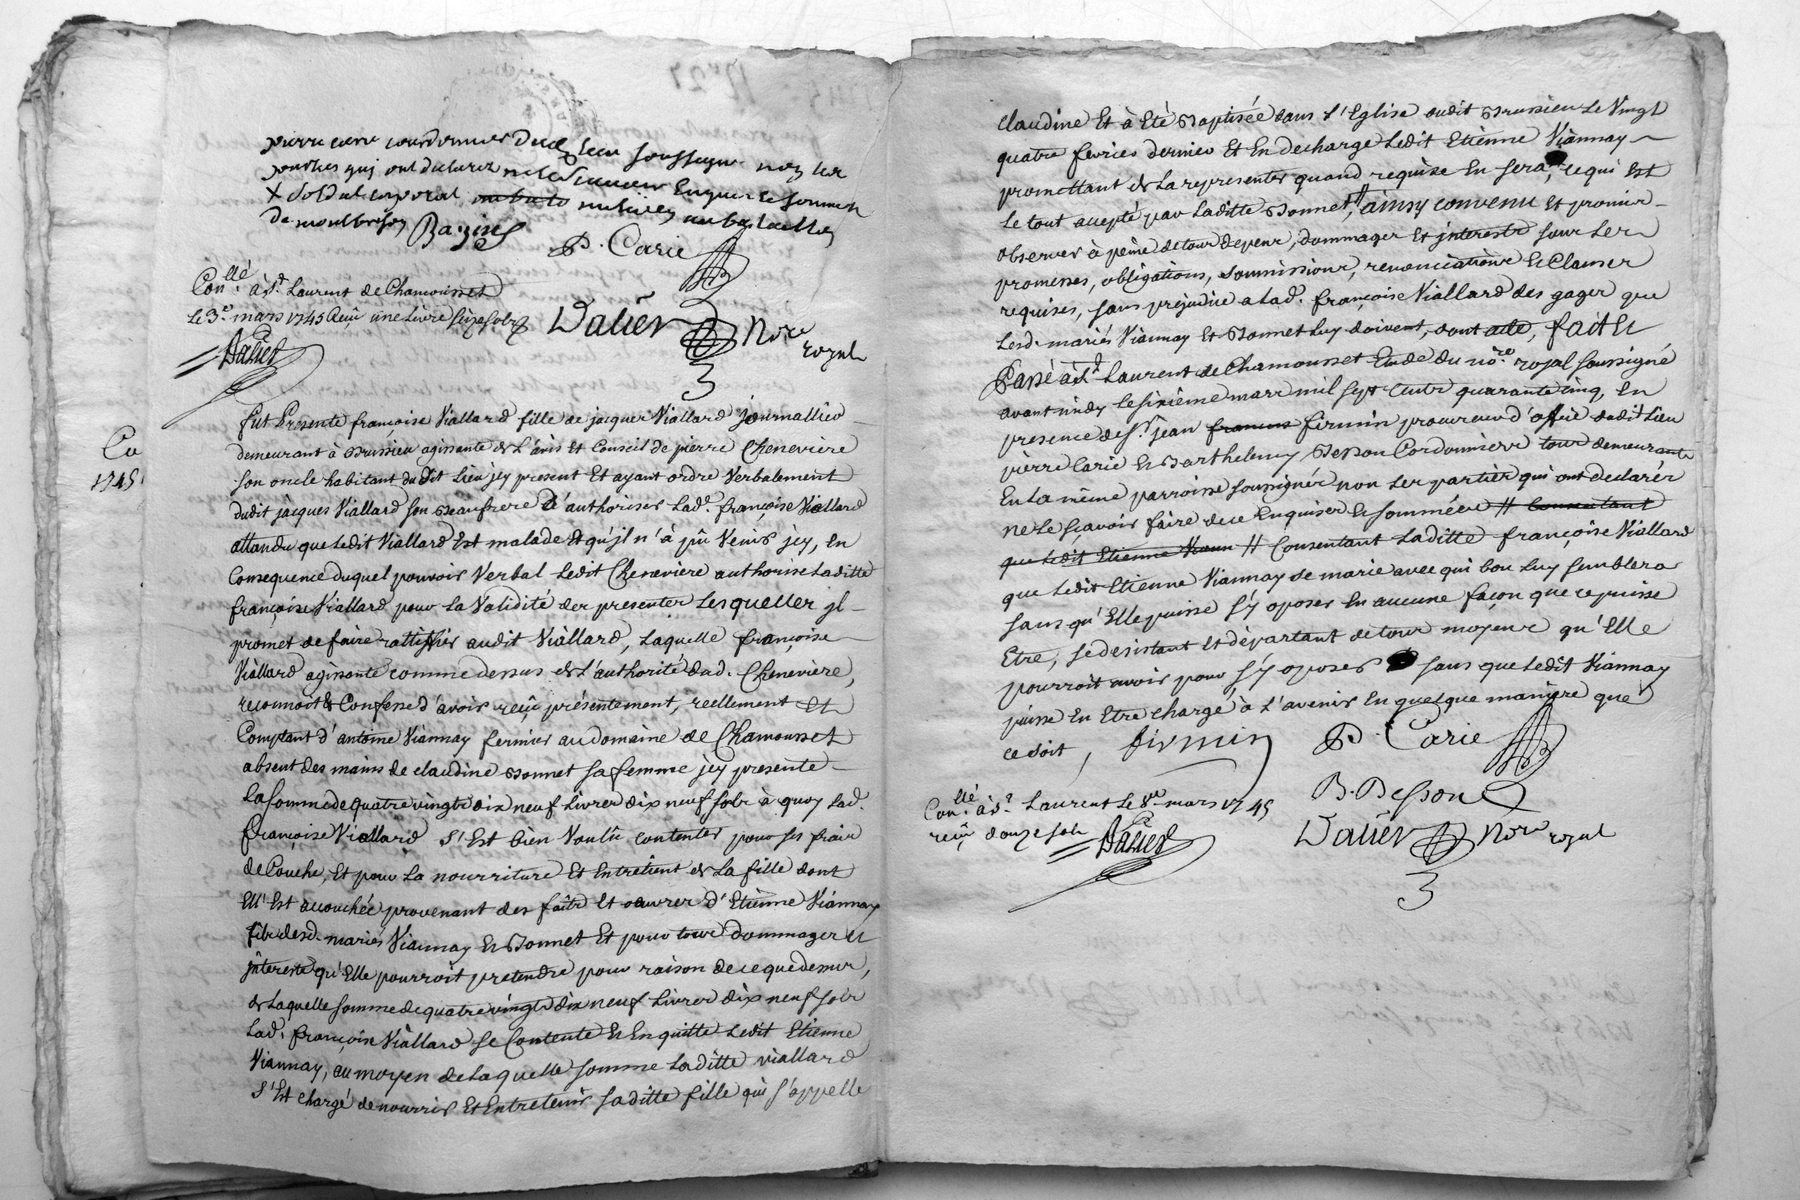 pierre carie cordonnier dud. lieu soussigné non les
parties qui ont declarez ne le scavoir enquis et sommés
X soldat corporal au bataillon
de montbrison Bazin P. Carie
Con.llé à St. Laurent de Chamousset
le 3e. mars 1745 Reçu une livre seize sols Dalier Nore.
royal
Dalier
fut Presente françoise Viallard fille de jacques Viallard journallier
demeurant à Brussieu agissante de L'avis Et Conseil de pierre Cheneviere
son oncle habitant dudit Lieu jcy present Et ayant ordre Verbalement
dudit jacques Viallard son Beaufrere d'authoriser Lad.e françoise Viallard
attandu que Ledit Viallard Est malade Et qu'jl n'à pû Venir jcy, En
Consequence duquel pouvoir Verbal Ledit Cheneviere authorise Laditte
françoise Viallard pour La Validité des presentes Lesquelles jl
promet de faire rattiffier audit Viallard, Laquelle françoise
Viallard agissante comme dessus de L'authorité dud. Cheneviere,
reconnoit & Confesse d'avoir reçû présentement, réellement Et
Comptant d'antoine Viannay fermier au domaine de Chamousset
absent des mains de claudine Bonnet sa femme jcy presente
La somme de quatre vingts dix neuf Livres dix neuf sols à quoy Lad.
françoise Viallard s'Est bien Voulû contenter pour ses frais
de Couche, Et pour La nourriture Et Entretient de La fille dont
Ell' Est accouchée provenant des faits Et œuvres d'Etienne Viannay
fils desd. mariés Viannay Et Bonnet Et pour tous dommages Et
jnterests qu'Elle pourroit pretendre pour raison de ce que dessus,
de Laquelle somme de quatre vingts dix neuf Livres dix neuf sols
Lad. françoise Viallard se Contente Et En quitte Ledit Etienne
Viannay, au moyen de Laquelle somme Laditte viallard
s'Est chargé de nourrir Et Entretenir saditte fille qui s'appelle
Co
1745
claudine Et à Eté Baptisée dans L'Eglise dudit Brussieu Le Vingt
quatre fevrier dernier Et En decharge Ledit Etienne Viannay
promettant de La representer quand requise En sera, ce qui Est
Le tout accepté par Laditte Bonnet, ainsy convenu Et promis
observer à peine de tous depens, dommages Et jnterests sous Les
promesses, obligations, soumissions, renonciations Et Clauses
requises, sans prejudice a Lad. françoise Viallard des gages que
Lesd. mariés Viannay Et Bonnet Luy doivent, dont acte, fait Et
Passé à St. Laurent de Chamousset Etude du no.re royal soussigné
avant midy Le sixième mars mil sept cents quarante cinq, En
presence de Sr. jean francois firmin procureur d'office dudit Lieu
pierre Carie Et Barthelemy Besson Cordonniers tous demeurants
En La même parroisse soussignés non Les parties qui ont declarér
ne Le sçavoir faire de ce Enquises Et sommées // Consentant
que Ledit Etienne Viann // Consentant Laditte françoise Viallard
que Ledit Etienne Viannay se marie avec qui bon Luy semblera
sans qu'Elle puisse s'y oposer En aucune façon que ce puisse
Etre, se desistant Et départant de tous moyens qu'Elle
pourroit avoir pour s'y oposer sans que Ledit Viannay
puisse En Etre chargé à L'avenir En quelque manière que
ce soit, firmin P. Carie
B. Besson
Con.llé à St. Laurent Le 8me. mars 1745
reçû douze sols Dalier Dalier Nore. royal